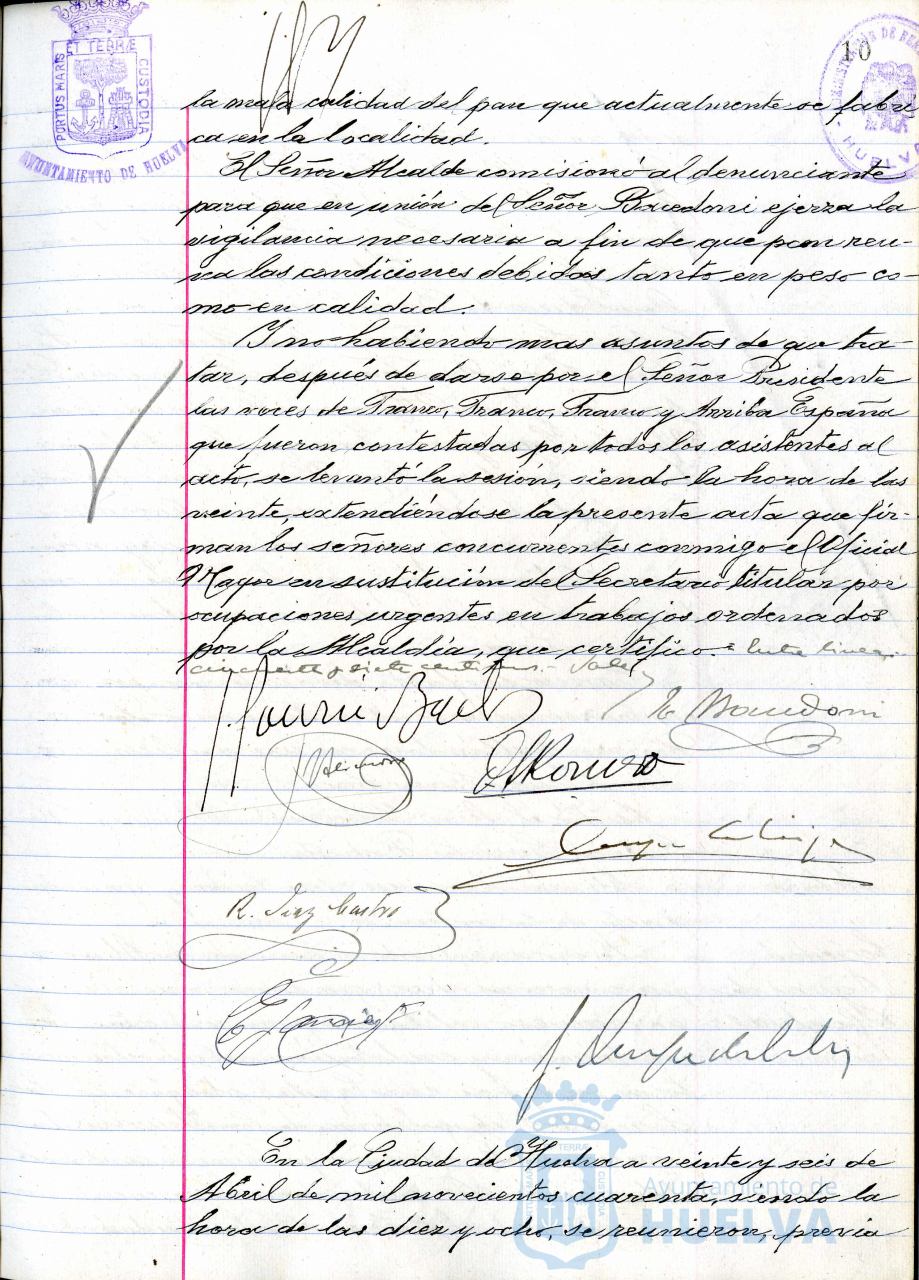 10
PORTUS MARIS ET TERRÆ CUSTODIA
AYUNTAMIENTO DE HUELVA
la mala calidad del pan que actualmente se fabri
ca en la localidad.
El Señor Alcalde comisionó al denunciante
para que en unión del Señor Bacedoni ejerza la
vigilancia necesaria a fin de que pan reu-
na las condiciones debidas tanto en peso co-
mo en calidad.
Y no habiendo mas asuntos de que tra-
tar, después de darse por el Señor Presidente
las voces de Franco, Franco, Franco y Arriba España
que fueron contestadas por todos los asistentes al
acto, se levantó la sesión, siendo la hora de las
veinte, extendiéndose la presente acta que fir-
man los señores concurrentes conmigo el Oficial
Mayor en sustitución del Secretario titular por
ocupaciones urgentes en trabajos ordenados
por la Alcaldía, que certifico = Entre lineas.
cincuenta y siete centimos.- Vale
R. Diaz Castro
En la Ciudad de Huelva a veinte y seis de
Abril de mil novecientos cuarenta, siendo la
hora de las diez y ocho, se reunieron, previa
Ayuntamiento de
HUELVA